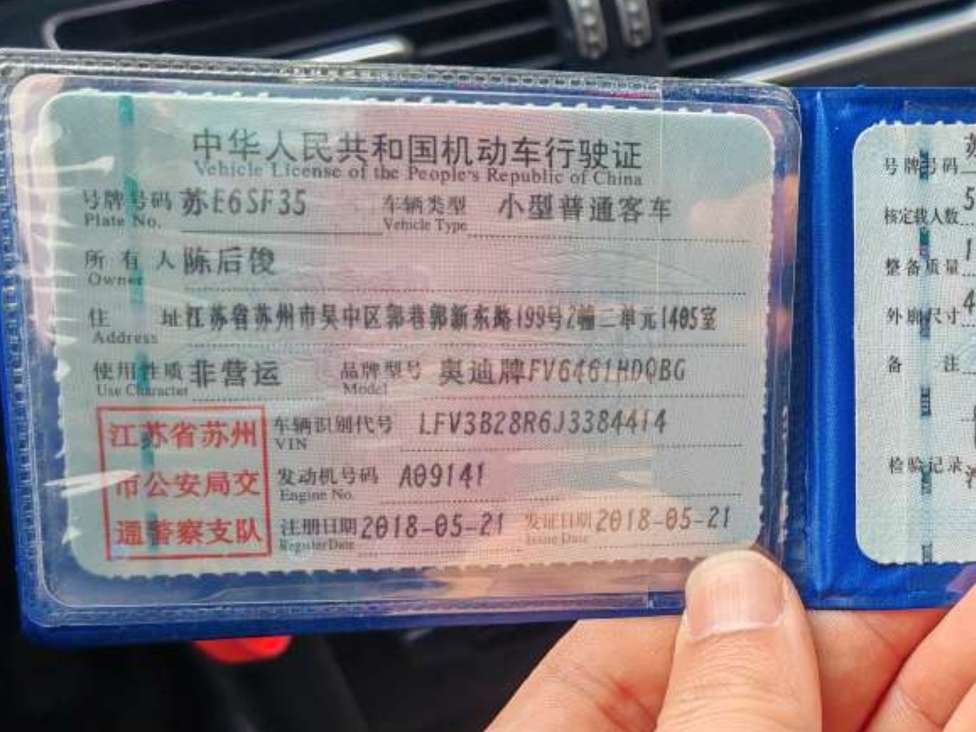 中华人民共和国机动车行驶证
Vehicle License of the People's Republic of China
号牌号码 苏E6SF35 车辆类型 小型普通客车
Plate No. Vehicle Type
所有人 陈后俊
Owner
住址 江苏省苏州市吴中区郭巷郭新东路199号2幢二单元1405室
Address
使用性质 非营运 品牌型号 奥迪牌FV6461HDQBG
Use Character Model
江苏省苏州
市公安局交
通警察支队
车辆识别代号 LFV3B28R6J3384414
VIN
发动机号码 A09141
Engine No.
注册日期 2018-05-21 发证日期 2018-05-21
Register Date Issue Date
号牌号码 苏
核定载人数 5
整备质量
外廓尺寸 4
备注
检验记录